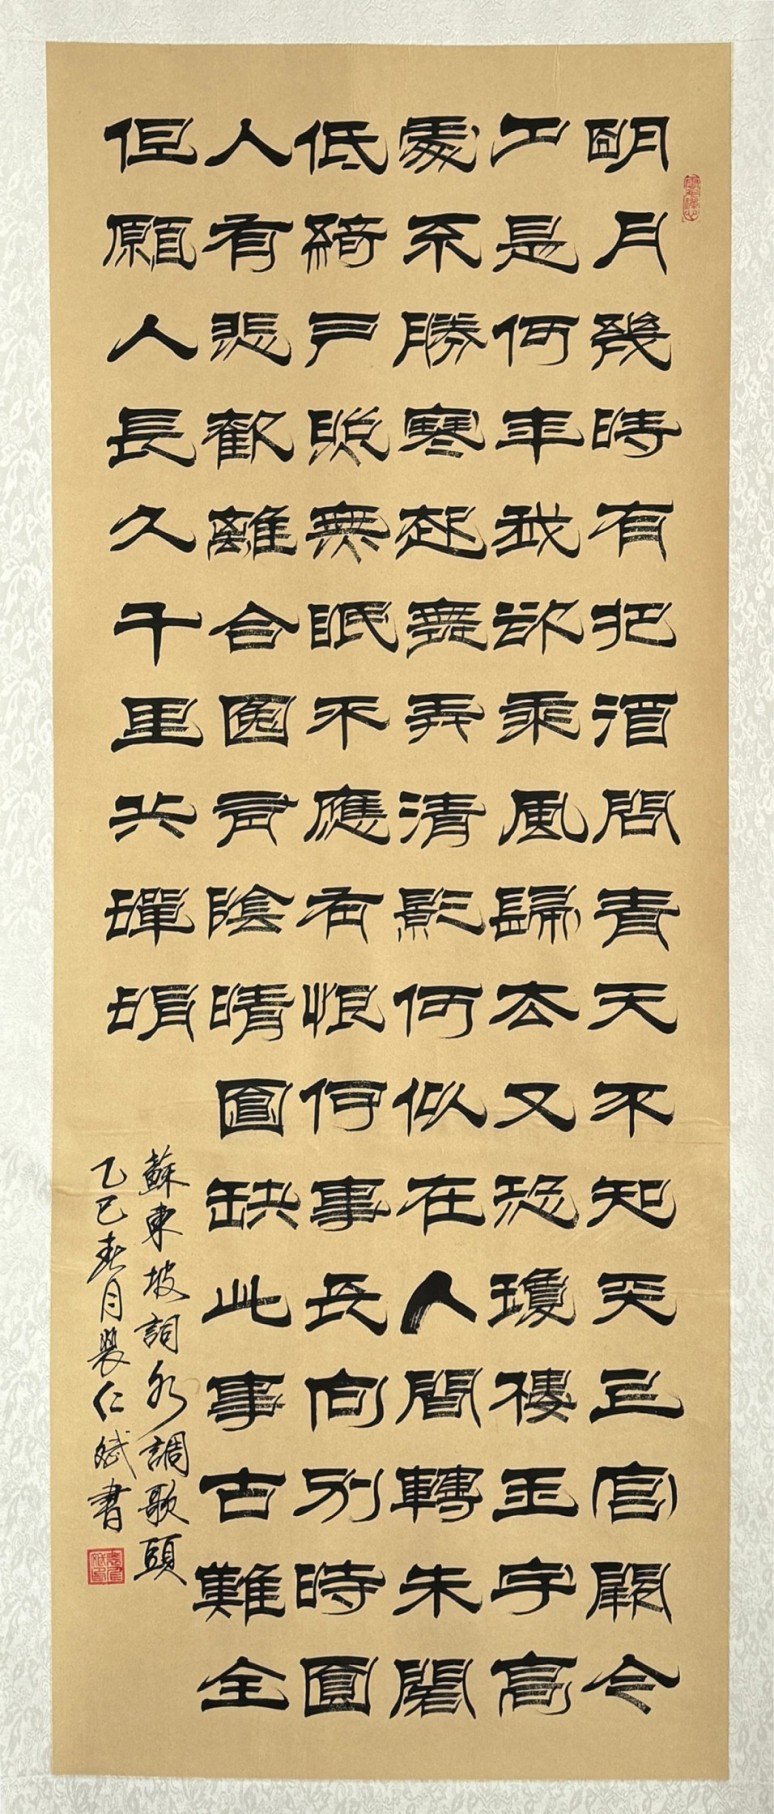 明月幾時有把酒問青天不知天上宮闕今
夕是何年我欲乘風歸去又恐瓊樓玉宇高
處不勝寒起舞弄清影何似在人間轉朱閣
低綺戶照無眠不應有恨何事長向別時圓
人有悲歡離合月有陰晴圓缺此事古難全
但願人長久千里共嬋娟
蘇東坡詞水調歌頭
乙巳春月裴仁斌書